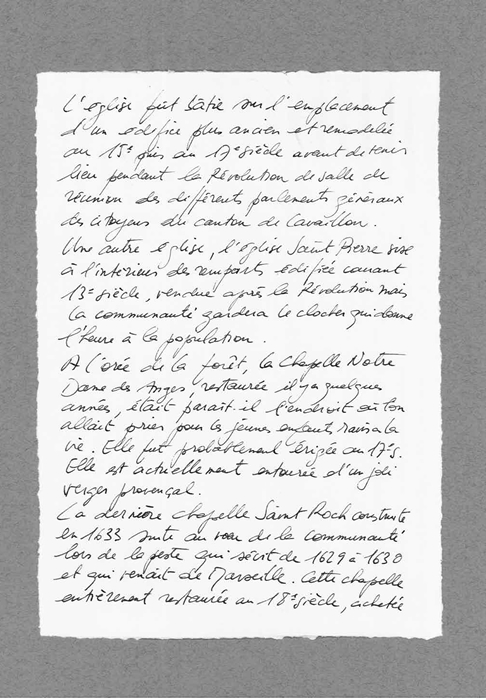 L'église fût bâtie sur l'emplacement
d'un édifice plus ancien et remodelée
au 15e puis au 17e siècle avant de tenir
lieu pendant la Révolution de salle de
réunion des différents parlements généraux
des citoyens du canton de Cavaillon.
Une autre église, l'église Saint Pierre sise
à l'intérieur des remparts édifiée courant
13e siècle, vendue après la Révolution mais
la communauté gardera le clocher qui donne
l'heure à la population.
A l'orée de la forêt, la Chapelle Notre
Dame des Anges, restaurée il y a quelques
années, était parait-il l'endroit où l'on
allait prier pour les jeunes enfants ravis à la
vie. Elle fut probablement érigée au 17e s.
Elle est actuellement entourée d'un joli
verger provençal.
La dernière chapelle Saint Roch construite
en 1633 suite au vœu de la communauté
lors de la peste qui sévit de 1629 à 1630
et qui venait de Marseille. Cette chapelle
entièrement restaurée au 18e siècle, achetée